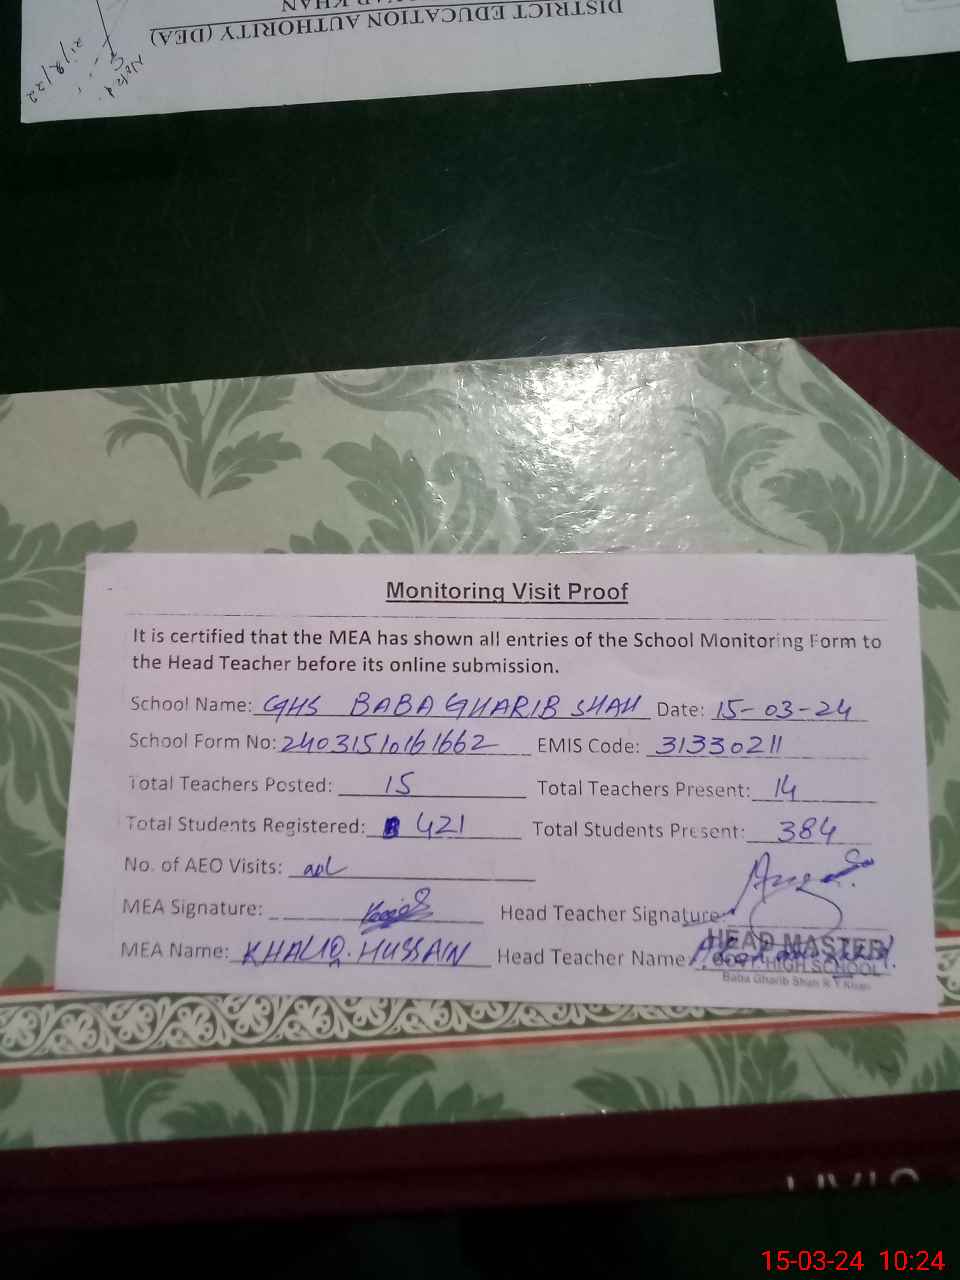 DISTRICT EDUCATION AUTHORITY (DEA)
KHAN
21/8/22
Monitoring Visit Proof
It is certified that the MEA has shown all entries of the School Monitoring Form to
the Head Teacher before its online submission.
School Name: GHS BABA GHARIB SHAH Date: 15-03-24
School Form No: 24031510161662 EMIS Code: 31330211
Total Teachers Posted: 15 Total Teachers Present: 14
Total Students Registered: 421 Total Students Present: 384
No. of AEO Visits:
MEA Signature: Head Teacher Signature:
MEA Name: KHALIQ. HUSSAIN Head Teacher Name
HEAD MASTER
GOVT. HIGH SCHOOL
Baba Gharib Shah R Y Khan
15-03-24 10:24